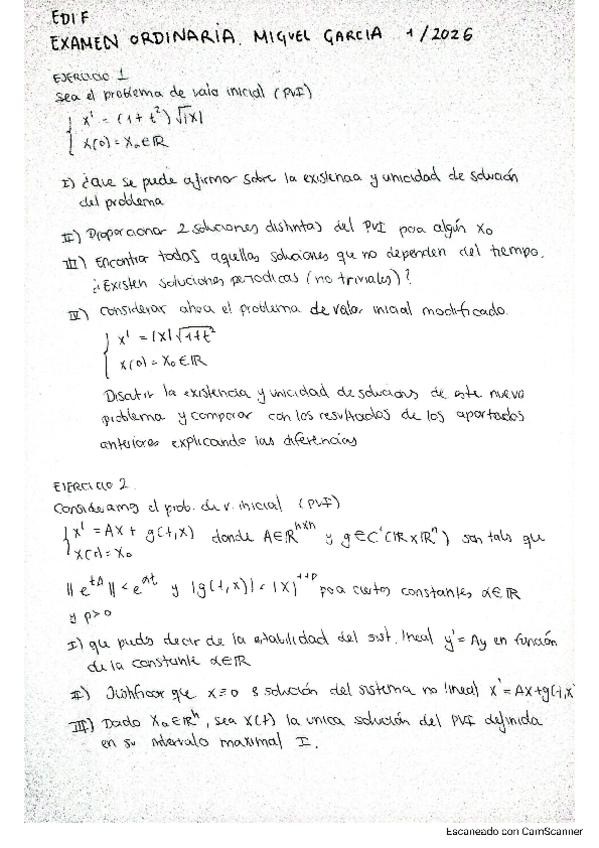 EDIF
EXAMEN ORDINARIA. MIGUEL GARCIA 1/2026
EJERCICIO 1
Sea el problema de valo inicial (PVI)
x' = (1+t²)√|x|
x(0) = x₀ ∈ ℝ
I) ¿Que se puede afirmar sobre la existencia y unicidad de solución
del problema
II) Proporcionar 2 soluciones distintas del PVI para algún x₀
III) Encontrar todas aquellas soluciones que no dependen del tiempo.
¿Existen soluciones periodicas (no triviales)?
IV) Considerar ahora el problema de valor inicial modificado.
x' = |x|√1+t²
x(0) = x₀ ∈ ℝ
Discutir la existencia y unicidad de solucions de este nuevo
problema y comparar con los resultados de los apartados
anteriores explicando las diferencias
EJERCICIO 2.
Consideramos el prob. de v. inicial (PVI)
x' = Ax + g(t,x)
x(0) = x₀
donde A∈ℝⁿˣⁿ y g∈C¹(ℝxℝⁿ) son tals que
||e^tA|| < e^αt y |g(t,x)| < |x|^1+p para ciertos constantes α∈ℝ
y p>0
I) que puedes decir de la estabilidad del sist. lineal y' = Ay en función
de la constante α∈ℝ
II) Justificar que x≡0 es solución del sistema no lineal x' = Ax+g(t,x
III) Dado x₀∈ℝⁿ, sea x(t) la unica solución del PVI definida
en su intervalo maximal I.
Escaneado con CamScanner